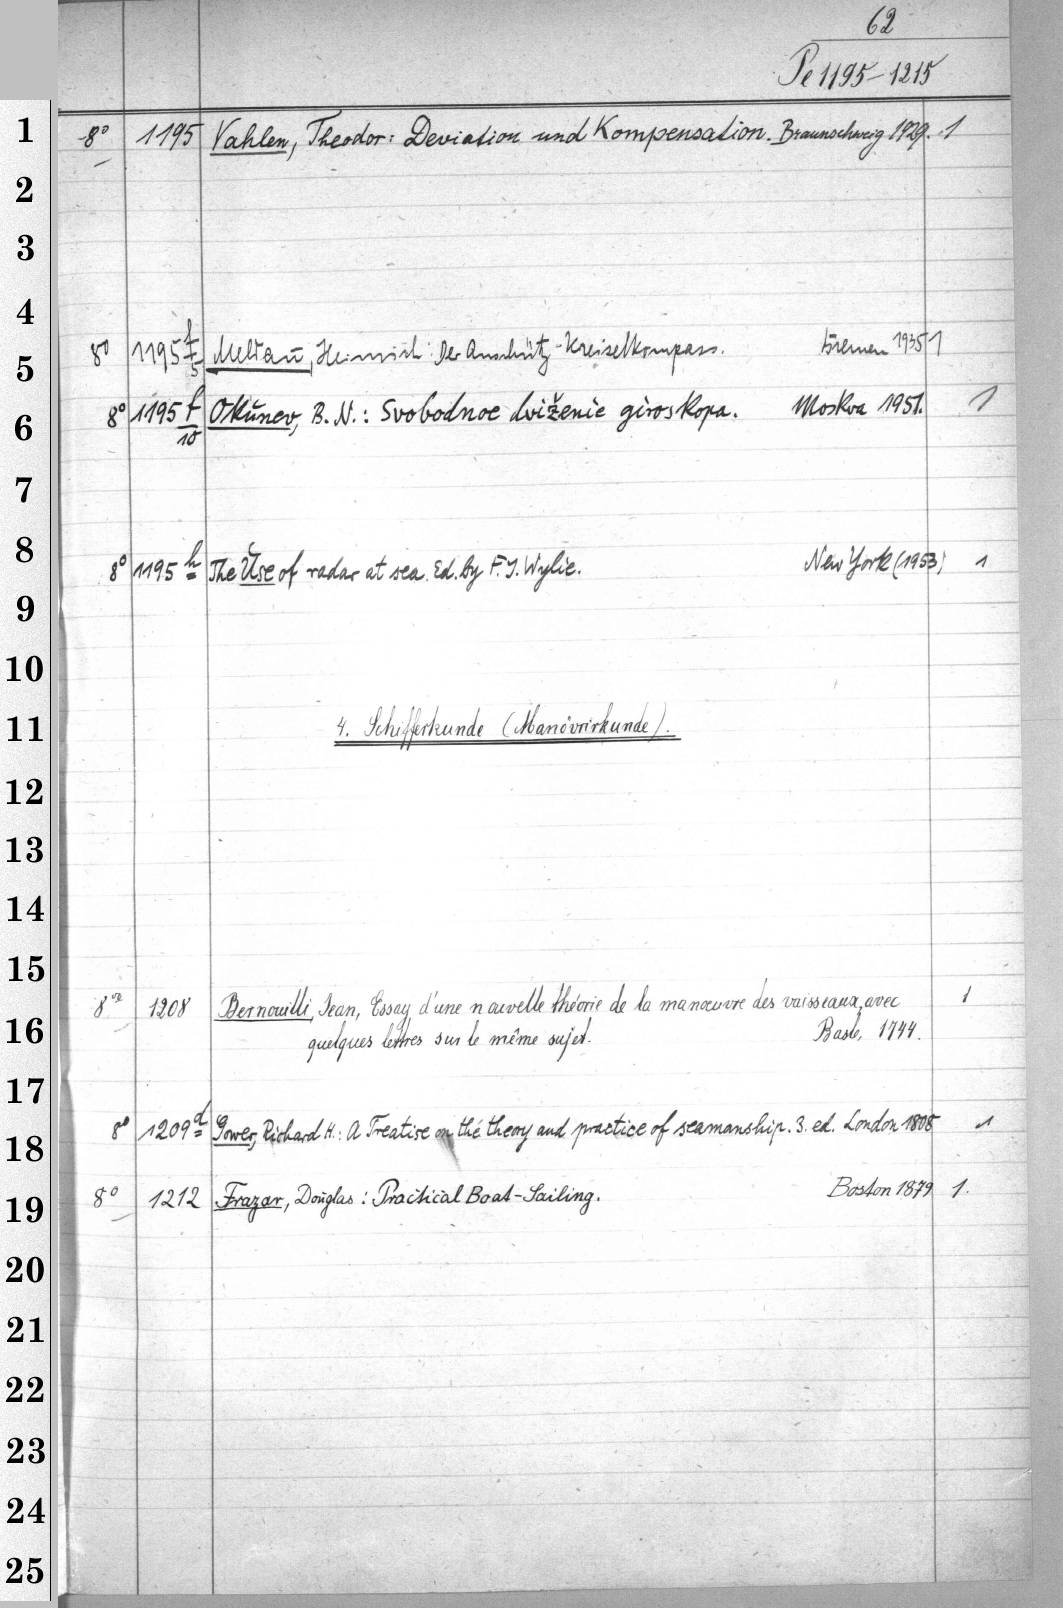 62
Pe 1195-1215
1 8° 1195 Vahlen, Theodor: Deviation und Kompensation. Braunschweig 1929. 1
2
3
4
5 8° 1195 f/5 Meldau, Heinrich: Der Anschütz-Kreiselkompass. Bremen 1935 1
6 8° 1195 f/10 Okunev, B. N.: Svobodnoe dviženie giroskopa. Moskva 1951. 1
7
8 8° 1195 h The Use of radar at sea. Ed. by F. J. Wylie. New York (1953) 1
9
10
11 4. Schifferkunde (Manövrirkunde).
12
13
14
15
8° 1208 Bernouilli, Jean, Essay d'une nouvelle théorie de la manœuvre des vaisseaux, avec 1
16 quelques lettres sur le même sujet. Basle, 1744.
17
18 8° 1209 d Gower, Richard H.: A Treatise on the theory and practice of seamanship. 3. ed. London 1808 1
19 8° 1212 Frazar, Douglas: Practical Boat-Sailing. Boston 1879 1.
20
21
22
23
24
25